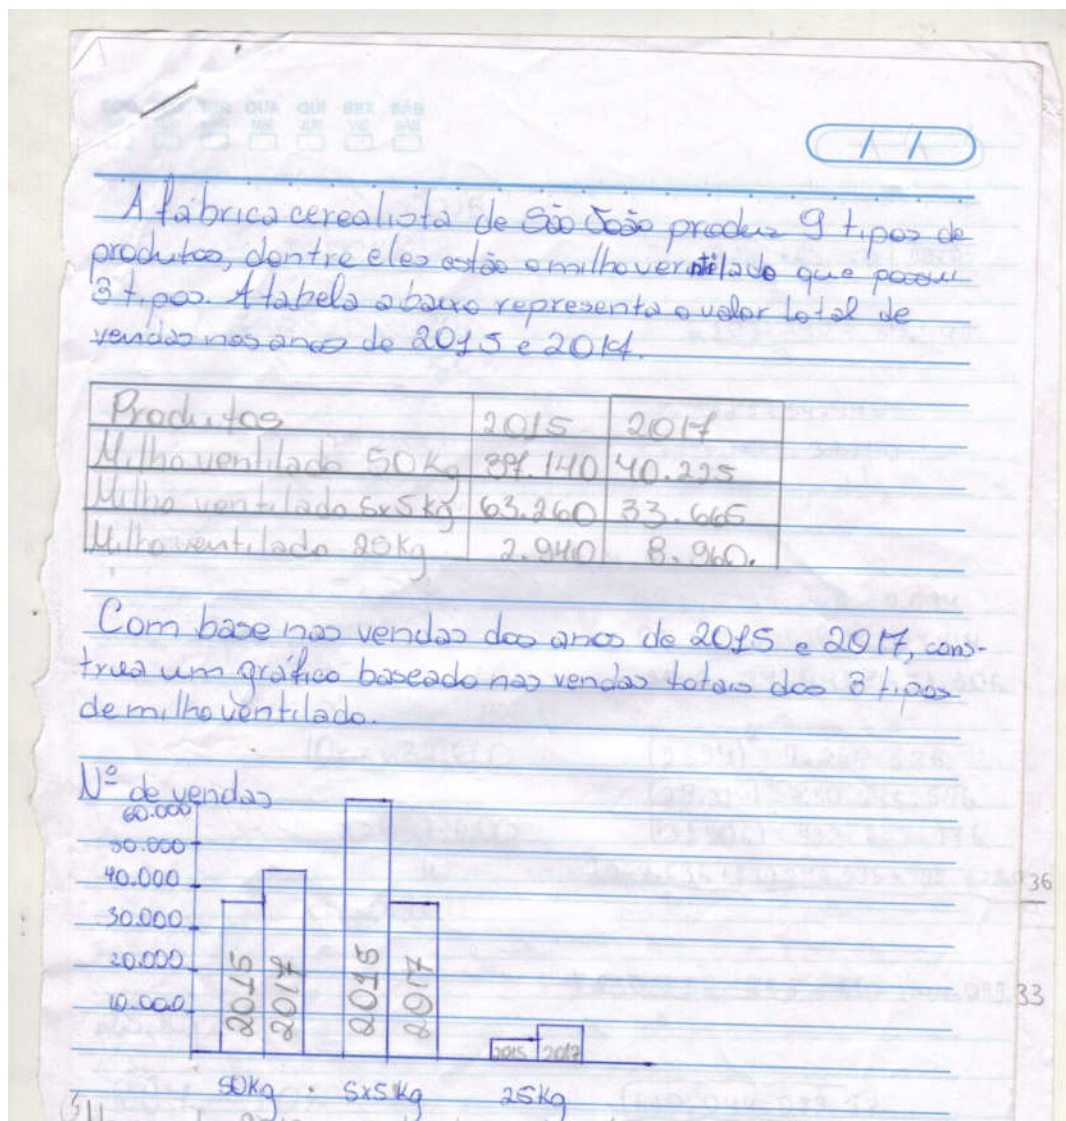 A fábrica cerealista de São João produz 9 tipos de
produtos, dentre eles estão o milho ventilado que possui
3 tipos. A tabela abaixo representa o valor total de
vendas nos anos de 2015 e 2017.
Produtos 2015 2017
Milho ventilado 50Kg 37.140 40.225
Milho ventilado 5x5kg 63.260 33.665
Milho ventilado 25Kg 2.940 8.960.
Com base nas vendas dos anos de 2015 e 2017, cons-
trua um gráfico baseado nas vendas totais dos 3 tipos
de milho ventilado.
Nº de vendas
60.000
50.000
40.000
36
30.000
20.000
10.000
33
2015 2017 2015 2017 2015 2017
50Kg 5x5Kg 25Kg